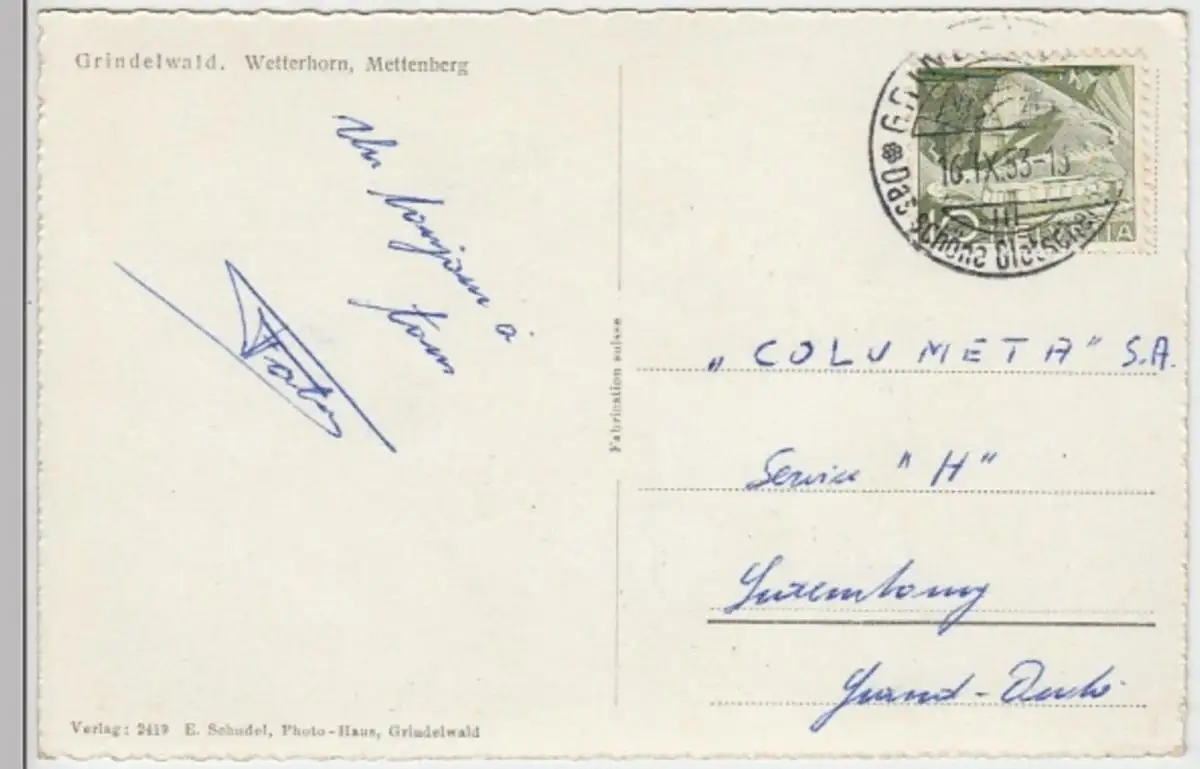 Grindelwald. Wetterhorn, Mettenberg
Un bonjour à
tous
Fabrication suisse
16.IX.53-13
Das schöne Gletscher
10 HELVETIA
„COLUMETA" S.A.
Service "H"
Luxembourg
Grand-Duché
Verlag: 2419 E. Schudel, Photo-Haus, Grindelwald